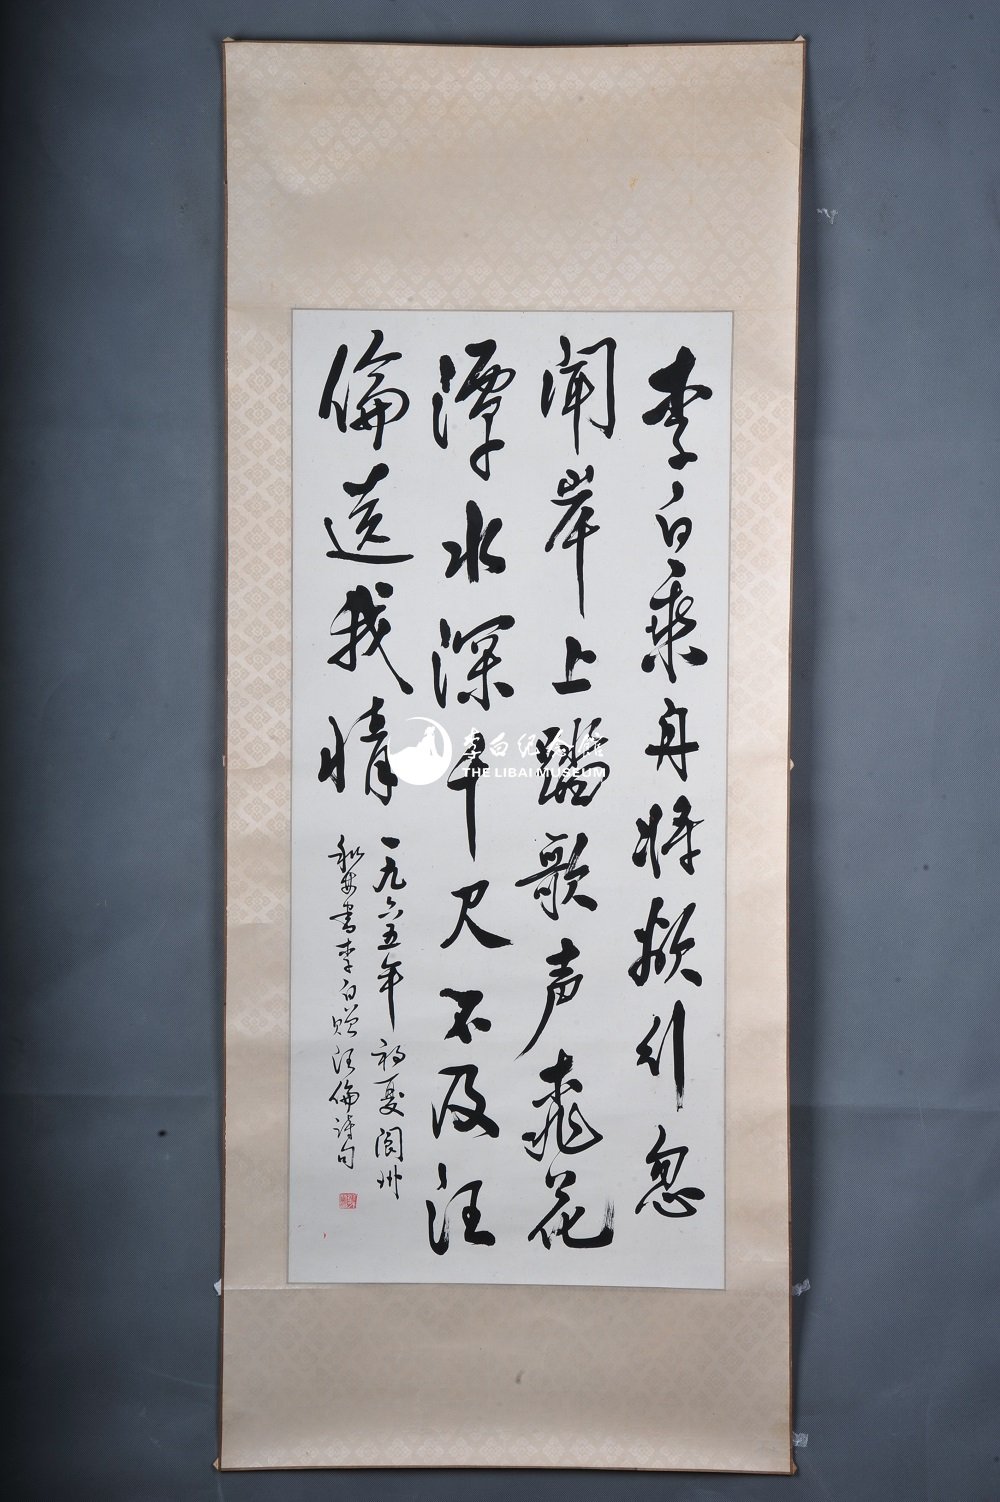 李白乘舟将欲行忽
闻岸上踏歌声桃花
潭水深千尺不及汪
倫送我情
一九六五年初夏阆州
書李白赠汪倫诗句
李白纪念館
THE LIBAI MUSEUM